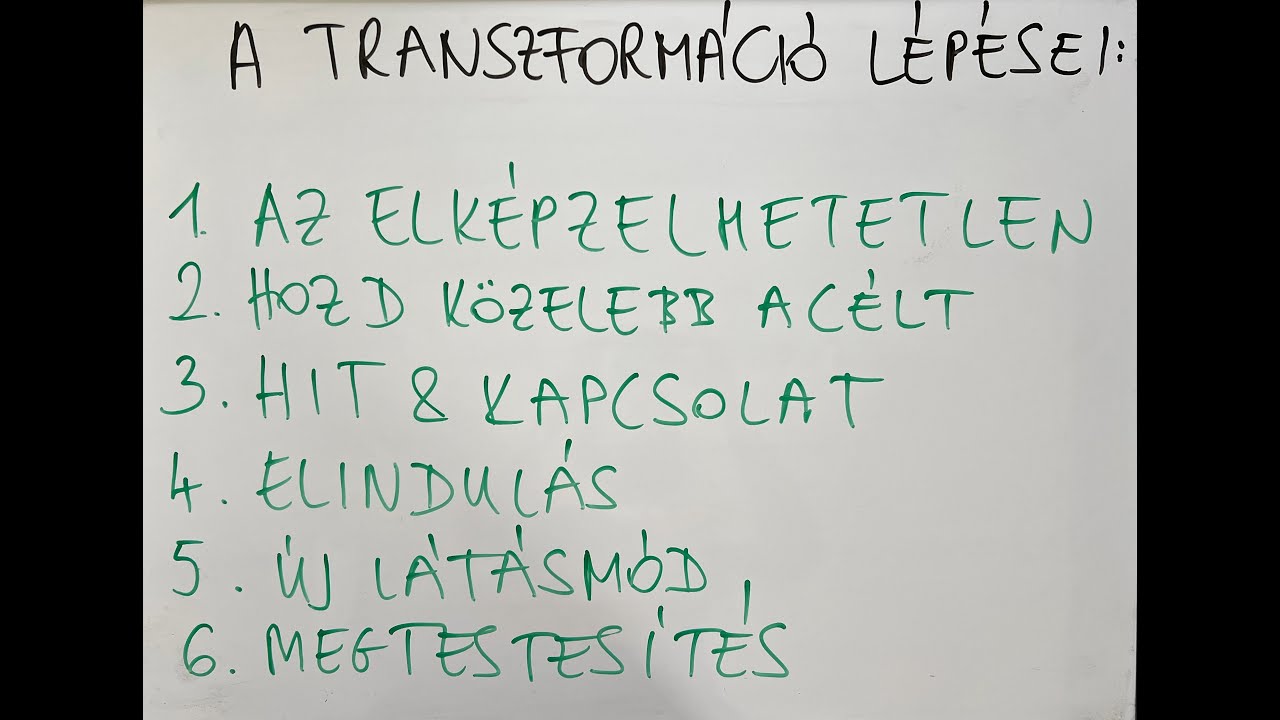 A TRANSZFORMÁCIÓ LÉPÉSEI:
1. AZ ELKÉPZELHETETLEN
2. HOZD KÖZELEBB A CÉLT
3. HIT & KAPCSOLAT
4. ELINDULÁS
5. ÚJ LÁTÁSMÓD
6. MEGTESTESÍTÉS